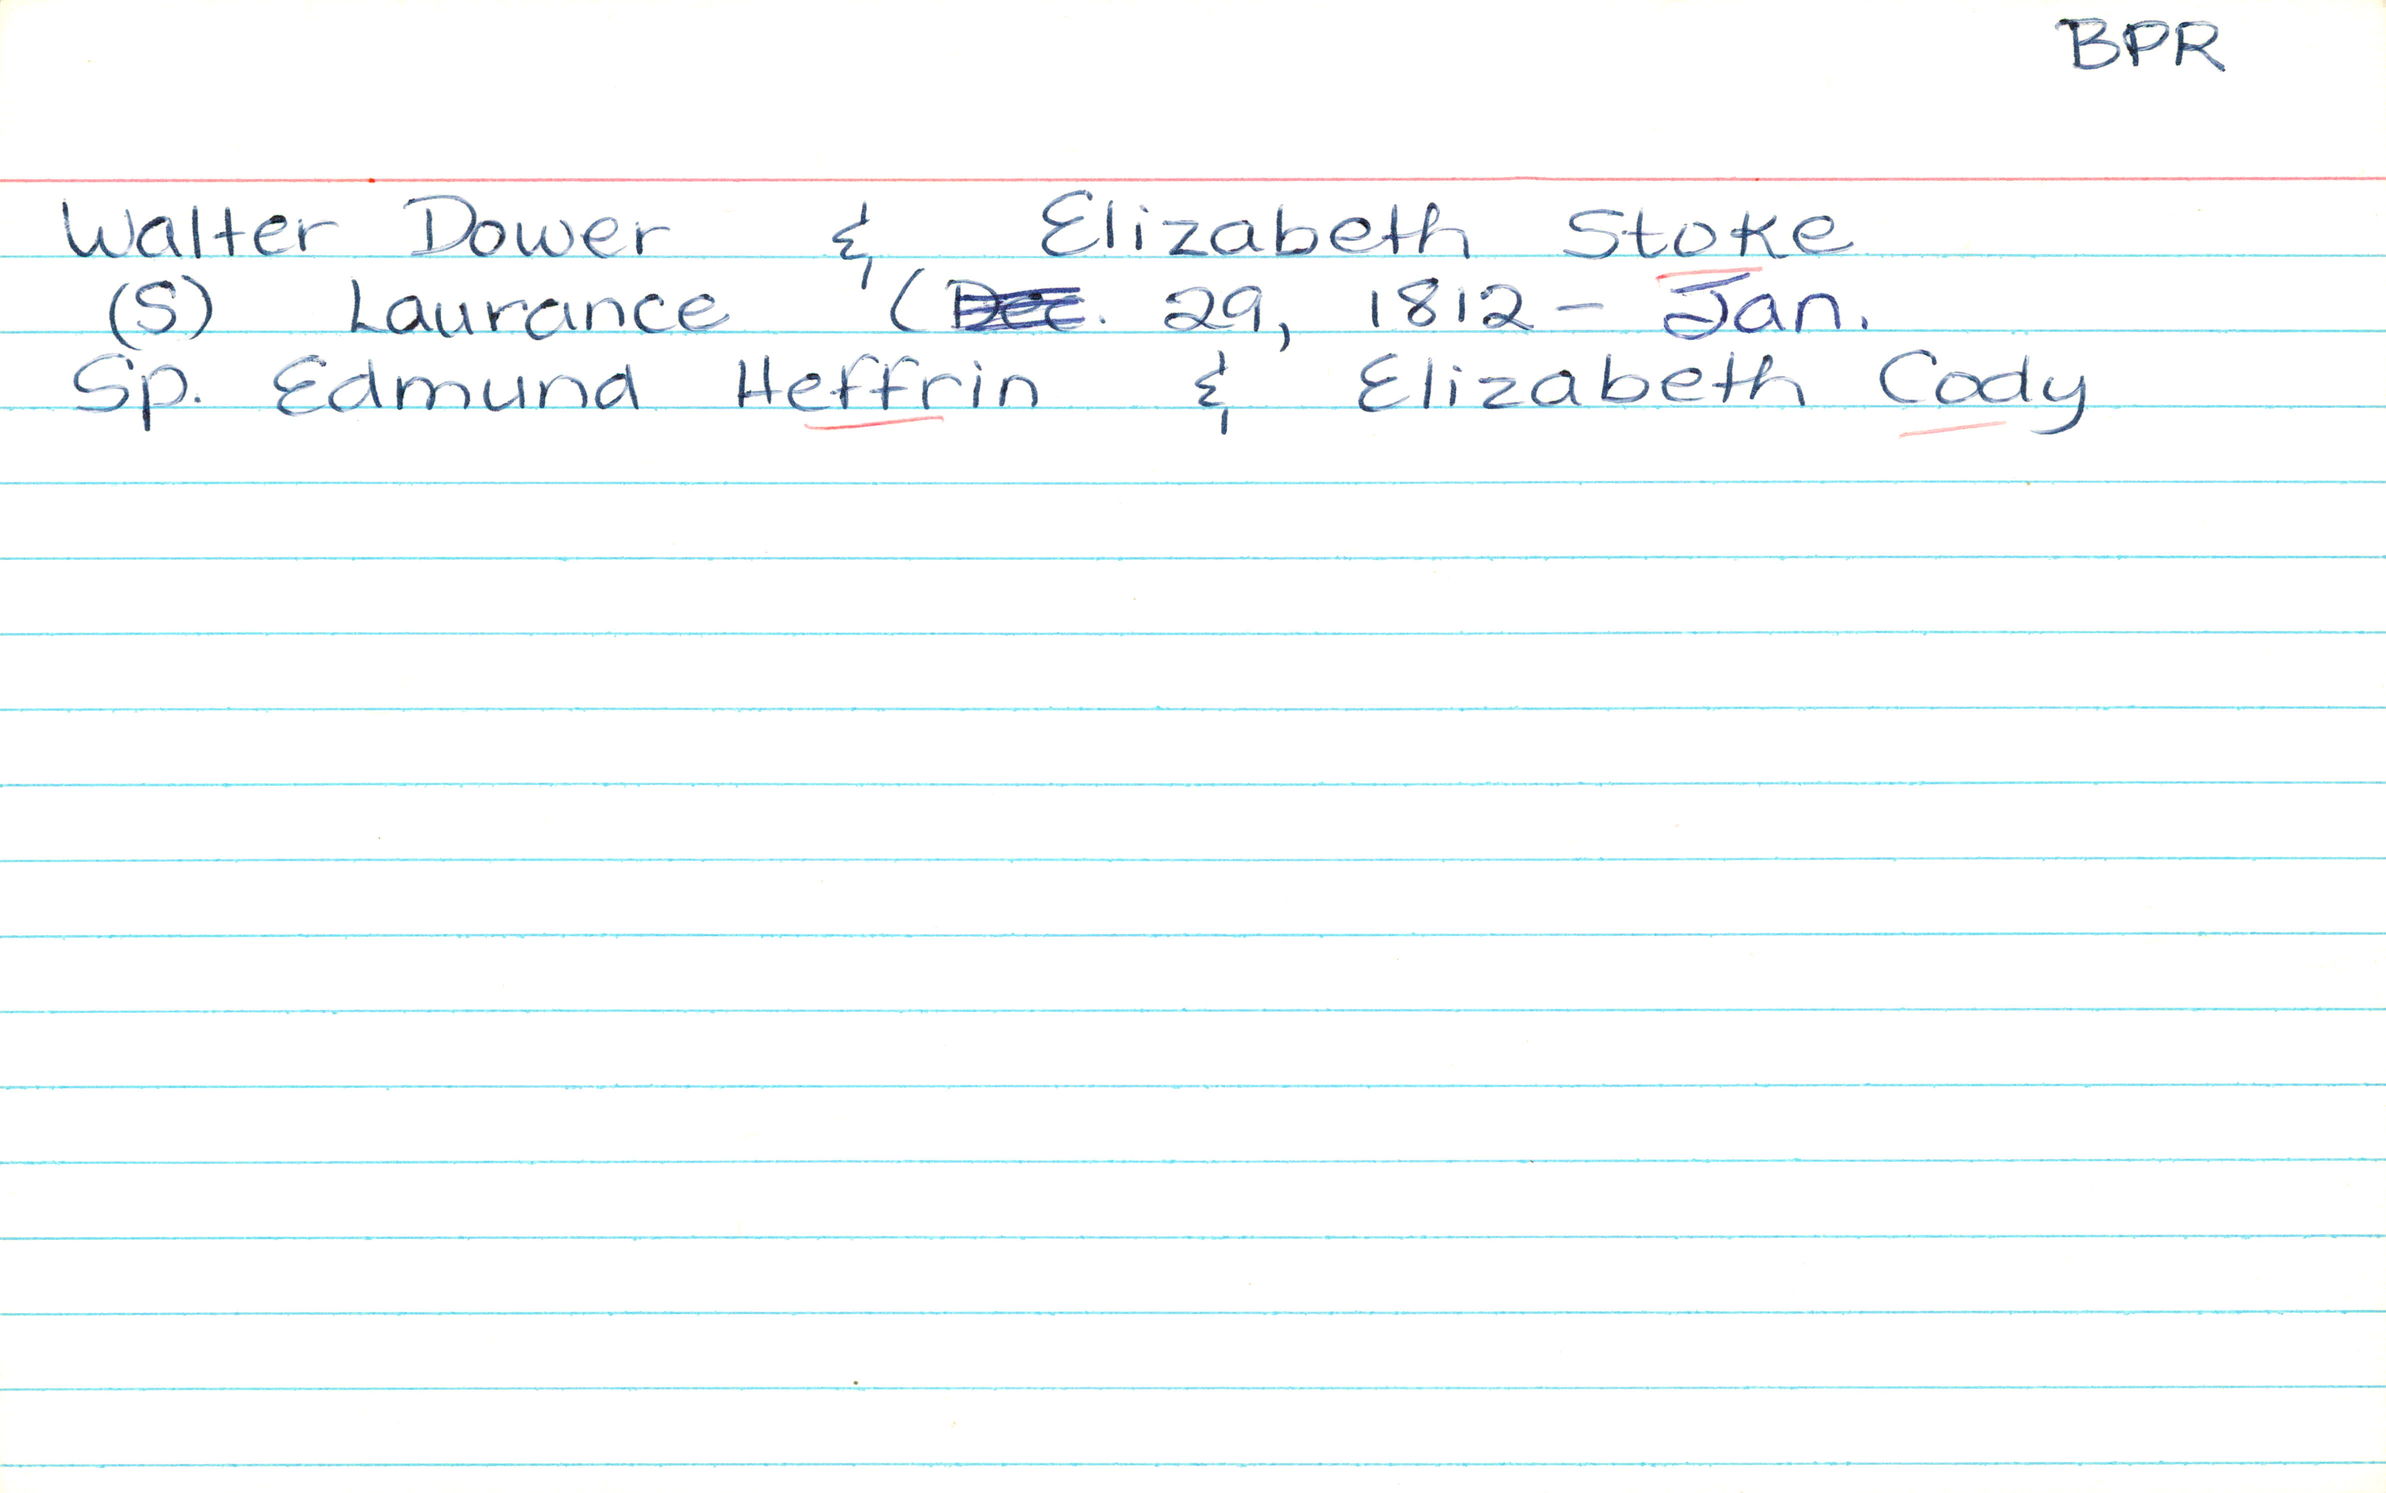 BPR
Walter Dower & Elizabeth Stoke
(S) Laurance (Dec. 29, 1812 - Jan.
Sp. Edmund Heffrin & Elizabeth Cody